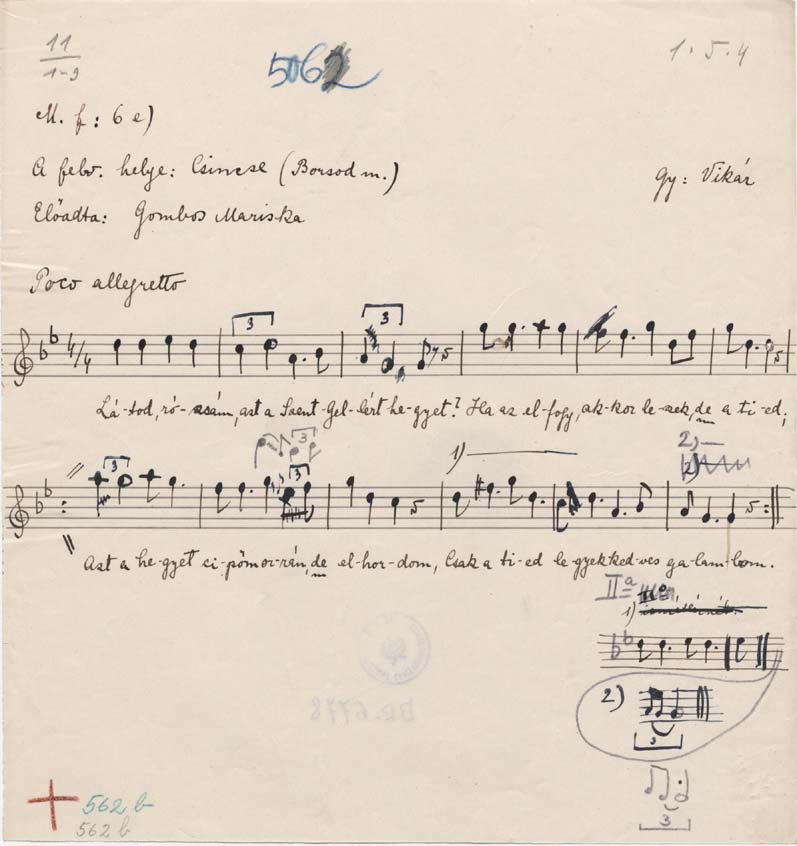 11
1-9
5062
1. 5. 4
M. f: 6 e)
A felv. helye: Csincse (Borsod m.)
Gy: Vikár
Előadta: Gombos Mariska
Poco allegretto
3 3
4/4
Lá-tod, ró-zsám, azt a Szent-Gel-lért he-gyet? Ha az el-fogy, ak-kor le-szek, de a ti-ed;
3 3 3 1) 2)
Azt a he-gyet ci-pőm or-rán, de el-hor-dom, Csak a ti-ed le-gyek ked-ves ga-lam-bom.
IIa
1)
2)
3
3
562 b
562 b